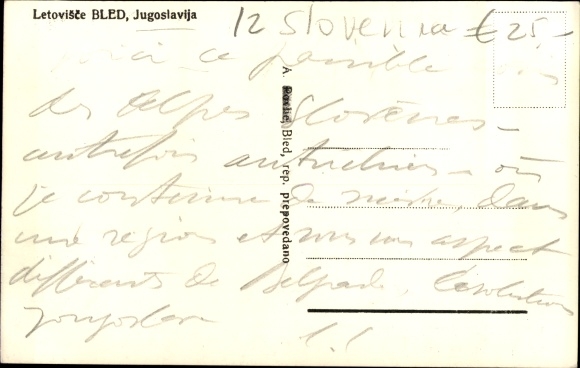 Letovišče BLED, Jugoslavija
12 Slovenia € 25,-
Voici ce paisible
des Alpes Slovènes -
autrefois autrichien - où
je continue de , dans
une région et sous un aspect
différents de Belgrade, l'
yougoslave
A. Bled, rep. prepovedano